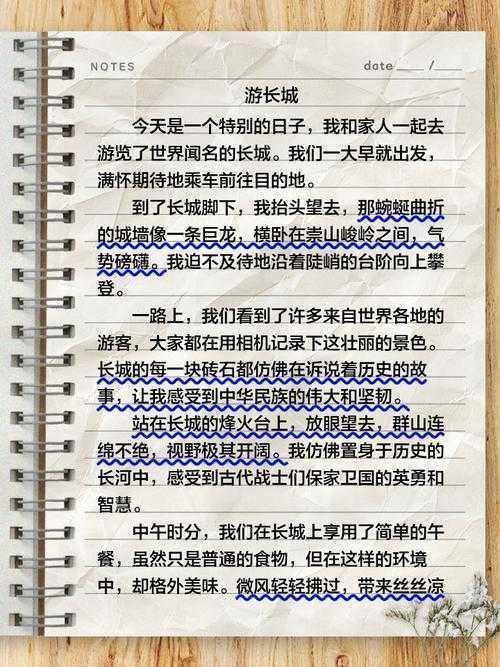 NOTES
date____ /____
游长城
今天是一个特别的日子，我和家人一起去
游览了世界闻名的长城。我们一大早就出发，
满怀期待地乘车前往目的地。
到了长城脚下，我抬头望去，那蜿蜒曲折
的城墙像一条巨龙，横卧在崇山峻岭之间，气
势磅礴。我迫不及待地沿着陡峭的台阶向上攀
登。
一路上，我们看到了许多来自世界各地的
游客，大家都在用相机记录下这壮丽的景色。
长城的每一块砖石都仿佛在诉说着历史的故
事，让我感受到中华民族的伟大和坚韧。
站在长城的烽火台上，放眼望去，群山连
绵不绝，视野极其开阔。我仿佛置身于历史的
长河中，感受到古代战士们保家卫国的英勇和
智慧。
中午时分，我们在长城上享用了简单的午
餐，虽然只是普通的食物，但在这样的环境
中，却格外美味。微风轻轻拂过，带来丝丝凉